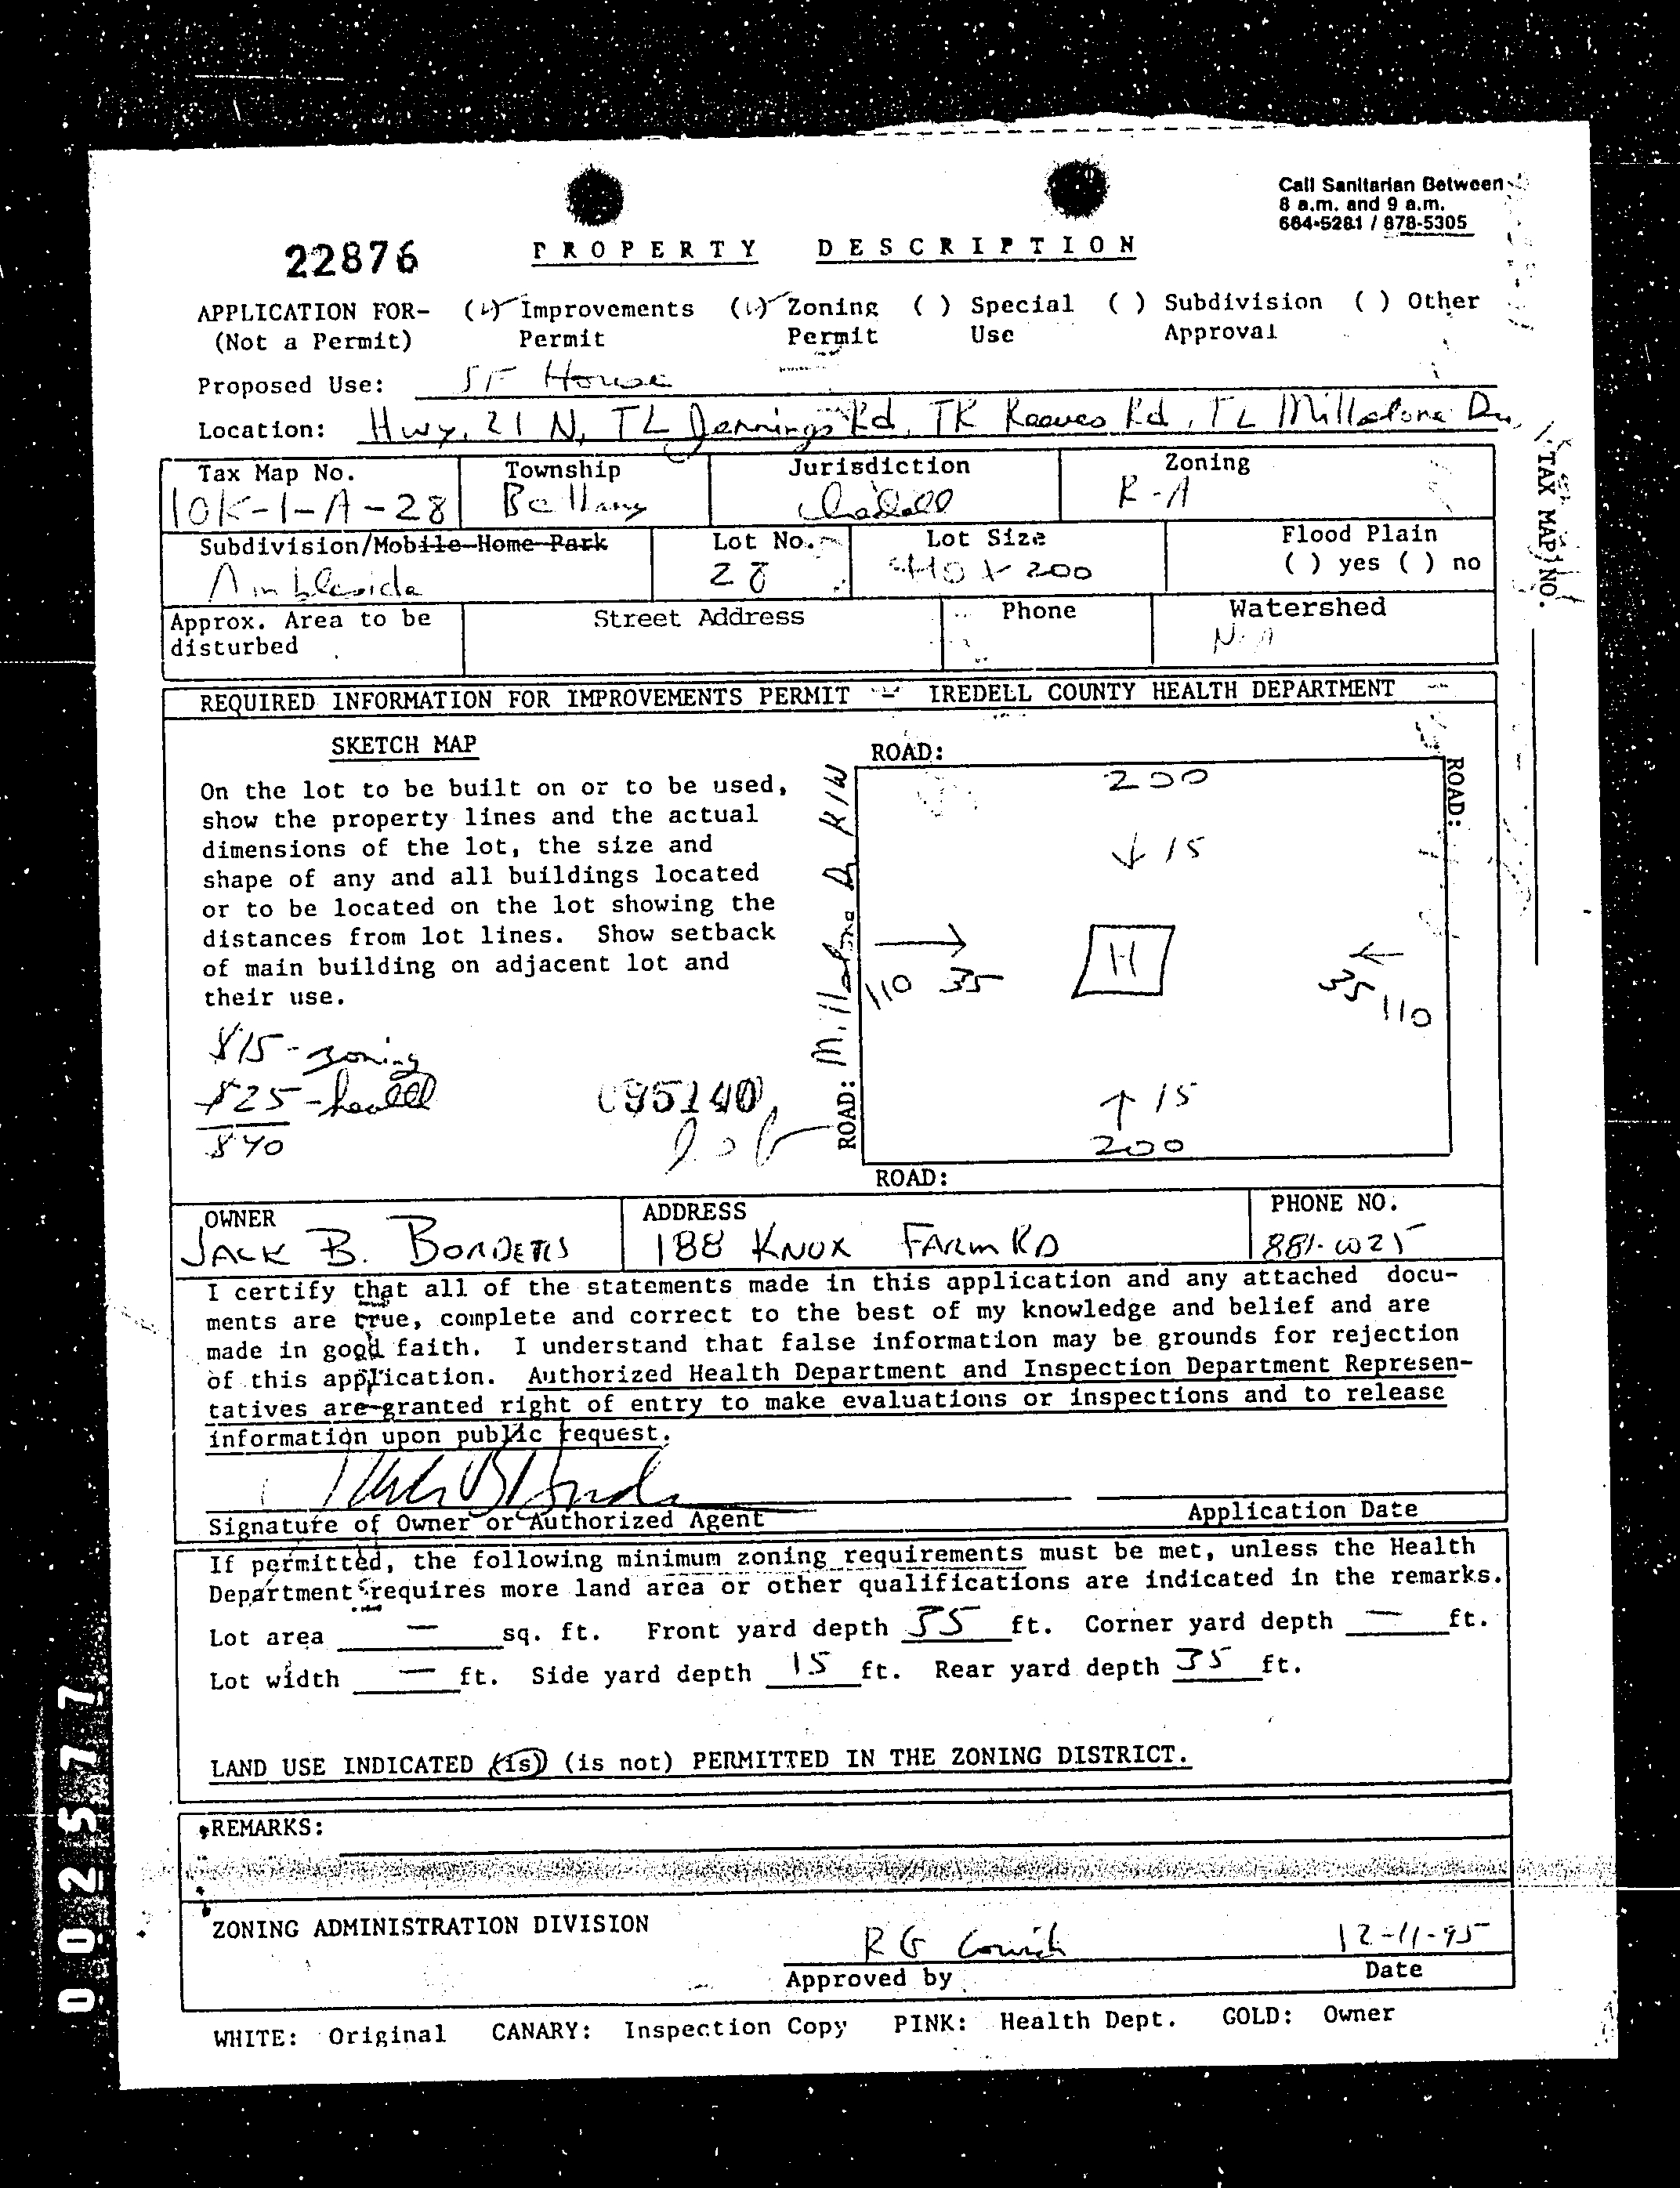 Call Sanitarian Between
8 a.m. and 9 a.m.
664-5281 / 878-5305
22876
PROPERTY DESCRIPTION
APPLICATION FOR- (✓) Improvements (✓) Zoning ( ) Special ( ) Subdivision ( ) Other
(Not a Permit) Permit Permit Use Approval
Proposed Use: SF House
Location: Hwy. 21 N, TL Jennings Rd, TR Reeves Rd, TL Millstone Dr,
Tax Map No. Township Jurisdiction Zoning
10K-1-A-28 Bethany Iredell R-A
Subdivision/Mobile Home Park Lot No. Lot Size Flood Plain
Ambleside 28 110 x 200 ( ) yes ( ) no
Approx. Area to be Street Address Phone Watershed
disturbed N.A
TAX MAP NO.
REQUIRED INFORMATION FOR IMPROVEMENTS PERMIT - IREDELL COUNTY HEALTH DEPARTMENT
SKETCH MAP
On the lot to be built on or to be used,
show the property lines and the actual
dimensions of the lot, the size and
shape of any and all buildings located
or to be located on the lot showing the
distances from lot lines. Show setback
of main building on adjacent lot and
their use.
$15-zoning
$25-health
$40
095140
ROAD:
200
↓ 15
ROAD:
H
110 35
35 110
↑ 15
200
ROAD: Millstone Dr R/W
ROAD:
OWNER ADDRESS PHONE NO.
JACK B. BORDERS 188 KNOX FARM RD 881-0025
I certify that all of the statements made in this application and any attached docu-
ments are true, complete and correct to the best of my knowledge and belief and are
made in good faith. I understand that false information may be grounds for rejection
of this application. Authorized Health Department and Inspection Department Represen-
tatives are granted right of entry to make evaluations or inspections and to release
information upon public request.
Signature of Owner or Authorized Agent Application Date
If permitted, the following minimum zoning requirements must be met, unless the Health
Department requires more land area or other qualifications are indicated in the remarks.
Lot area — sq. ft. Front yard depth 35 ft. Corner yard depth — ft.
Lot width — ft. Side yard depth 15 ft. Rear yard depth 35 ft.
LAND USE INDICATED (is) (is not) PERMITTED IN THE ZONING DISTRICT.
REMARKS:
ZONING ADMINISTRATION DIVISION
R G 12-11-95
Approved by Date
WHITE: Original CANARY: Inspection Copy PINK: Health Dept. GOLD: Owner
002577